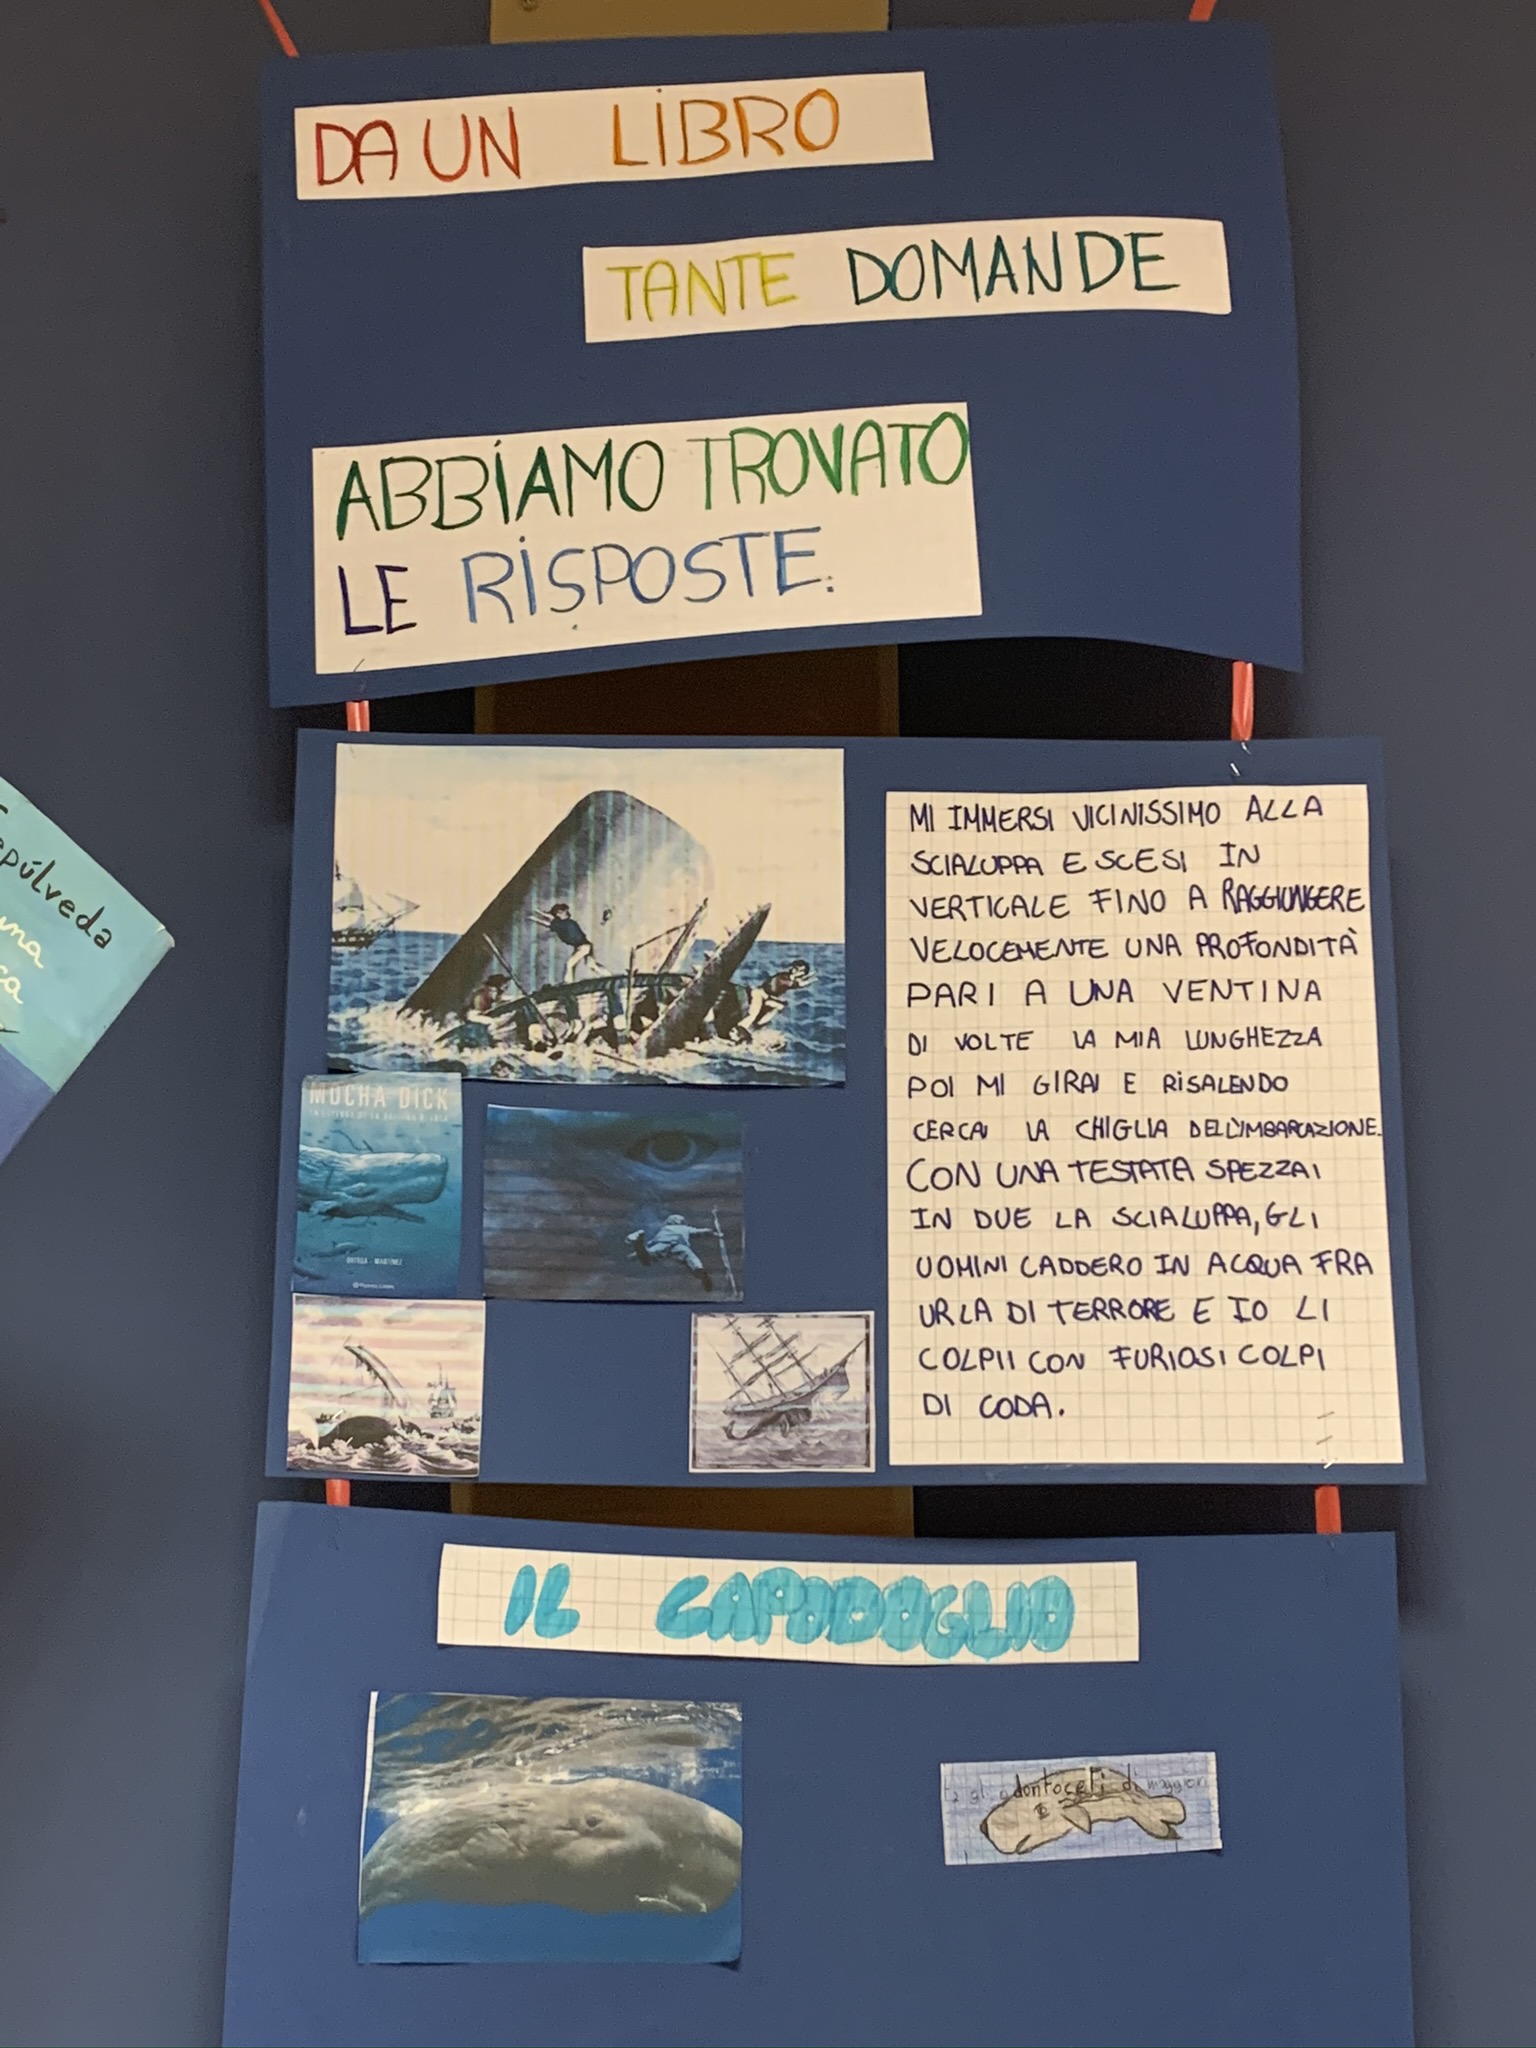 DA UN LIBRO
TANTE DOMANDE
ABBIAMO TROVATO
LE RISPOSTE:
MI IMMERSI VICINISSIMO ALLA
SCIALUPPA E SCESI IN
VERTICALE FINO A RAGGIUNGERE
VELOCEMENTE UNA PROFONDITÀ
PARI A UNA VENTINA
DI VOLTE LA MIA LUNGHEZZA
POI MI GIRAI E RISALENDO
CERCAI LA CHIGLIA DELL'IMBARCAZIONE.
CON UNA TESTATA SPEZZAI
IN DUE LA SCIALUPPA, GLI
UOMINI CADDERO IN ACQUA FRA
URLA DI TERRORE E IO LI
COLPII CON FURIOSI COLPI
DI CODA.
MOCHA DICK
ORTEGA - MARTÍNEZ
IL CAPODOGLIO
gli odontoceti di maggiori
epúlveda
una